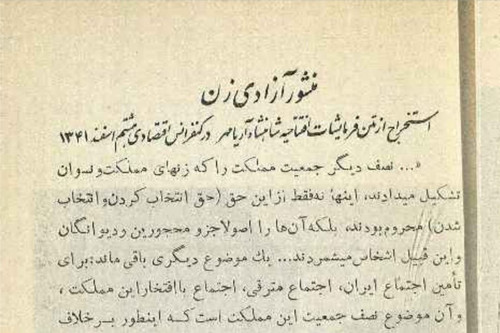 منشور آزادی زن
استخراج از متن فرمایشات افتتاحیه شاهنشاه آریامهر در کنفرانس اقتصادی هشتم اسفند ۱۳۴۱
«... نصف دیگر جمعیت مملکت را که زنهای مملکت و نسوان
تشکیل میدادند، اینها نه فقط از این حق (حق انتخاب کردن و انتخاب
شدن) محروم بودند، بلکه آن‌ها را اصولا جزو محجورین و دیوانگان
و این قبیل اشخاص میشمردند... یك موضوع دیگری باقی ماند: برای
تأمین اجتماع ایران، اجتماع مترقی، اجتماع با افتخار این مملکت ،
و آن موضوع نصف جمعیت این مملکت است که اینطور بر خلاف